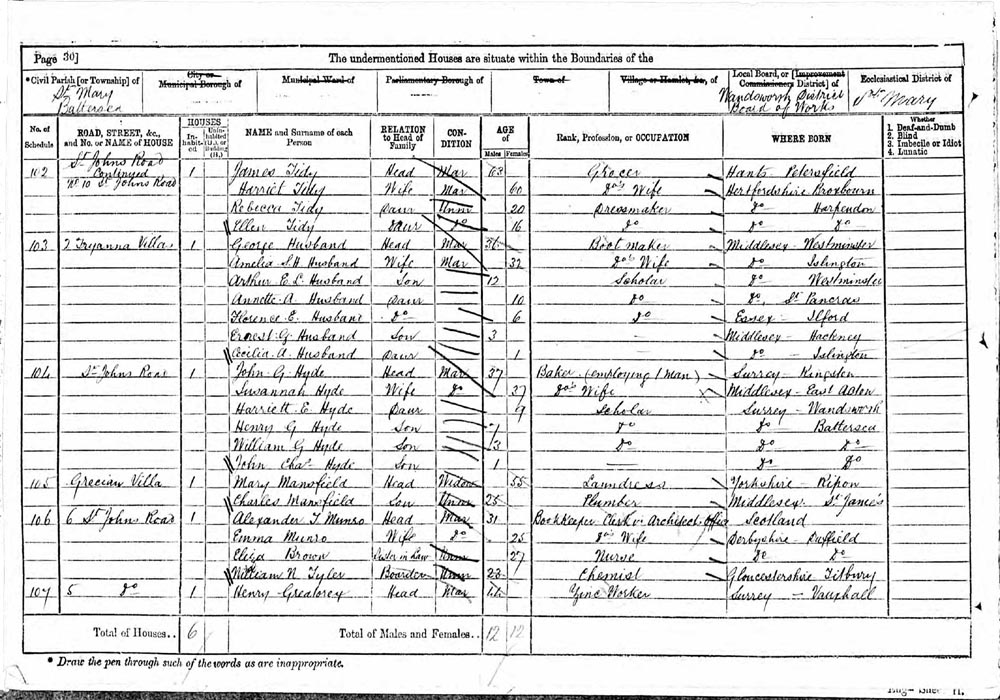 Page 30] The undermentioned Houses are situate within the Boundaries of the
*Civil Parish [or Township] of City or Municipal Borough of Municipal Ward of Parliamentary Borough of Town of Village or Hamlet, &c., of Local Board, or [Improvement Commissioners District] of Ecclesiastical District of
St Mary Battersea Wandsworth District Board of Works St Mary
No. of Schedule ROAD, STREET, &c., and No. or NAME of HOUSE HOUSES Inhabited Uninhabited (U.), or Building (B.) NAME and Surname of each Person RELATION to Head of Family CONDITION AGE of Males Females Rank, Profession, or OCCUPATION WHERE BORN Whether 1. Deaf-and-Dumb 2. Blind 3. Imbecile or Idiot 4. Lunatic
St Johns Road Continued
102 No 10 St Johns Road 1 James Tidy Head Mar 63 Grocer Hants Petersfield
Harriet Tidy Wife Mar 60 Do's Wife Hertfordshire Broxbourn
Rebecca Tidy Daur Unm 20 Dressmaker Do Harpendon
Ellen Tidy Daur Do 16 Do Do Do
103 2 Tryanna Villas 1 George Husband Head Mar 36 Boot maker Middlesex - Westminster
Amelia S.H. Husband Wife Mar 32 Do's Wife Do Islington
Arthur E.L. Husband Son 12 Scholar Do Westminster
Annette A. Husband Daur 10 Do Do, St Pancras
Florence E. Husband Do 6 Do Essex - Ilford
Ernest G. Husband Son 3 Middlesex - Hackney
Cecilia A. Husband Daur 1 Do - Islington
104 St Johns Road 1 John G. Hyde Head Mar 37 Baker (employing 1 man) Surrey - Kingston
Susannah Hyde Wife Do 37 Do's Wife Middlesex - East Acton
Harriett E. Hyde Daur 9 Scholar Surrey - Wandsworth
Henry G Hyde Son Do Do Battersea
William G Hyde Son 3 Do Do Do
John Chas Hyde Son 1 Do Do
105 Grecian Villa 1 Mary Mansfield Head Widow 55 Laundress Yorkshire - Ripon
Charles Mansfield Son Unm 25 Plumber Middlesex. St James's
106 6 St Johns Road 1 Alexander T. Munro Head Mar 31 Bookkeeper Clerk in Architects Office Scotland
Emma Munro Wife Do 25 Do's Wife Derbyshire - Duffield
Eliza Brown Sister in Law Unm 27 Nurse Do Do
William N. Tyler Boarder Unm 23 Chemist Gloucestershire Titbury
107 5 Do 1 Henry Greatorex Head Mar 44 Zinc Worker Surrey - Vauxhall
Total of Houses.. 6 Total of Males and Females.. 12 12
* Draw the pen through such of the words as are inappropriate.